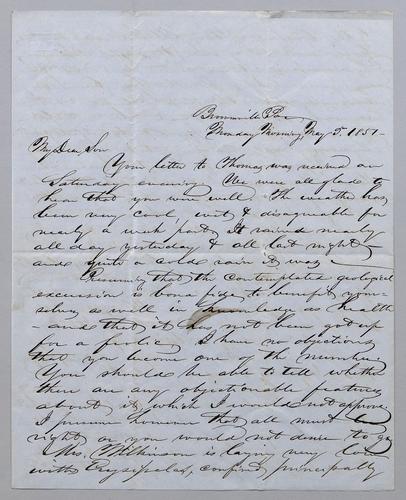 Brownsville Pa
Monday Morning, May 5. 1851-
My Dear Son
Your letter to Thomas was received on
Saturday evening We were all glad to
hear that you were well. The weather has
been very cool, wet & disagreeable for
nearly a week past, It rained nearly
all day yesterday & all last night,
and quite a cold rain it was
Presuming that the contemplated geological
excursion is bona fide to benefit your-
selves as well in knowledge as health
- and that it has not been got up
for a frolic, I have no objections
that you become one of the number.
You should be able to tell whether
there are any objectionable features
about it, which I would not approve
I presume however that all must be
right or you would not desire to go
Mrs. Wilkinson is laying very low
with Erysipelas, confined principally